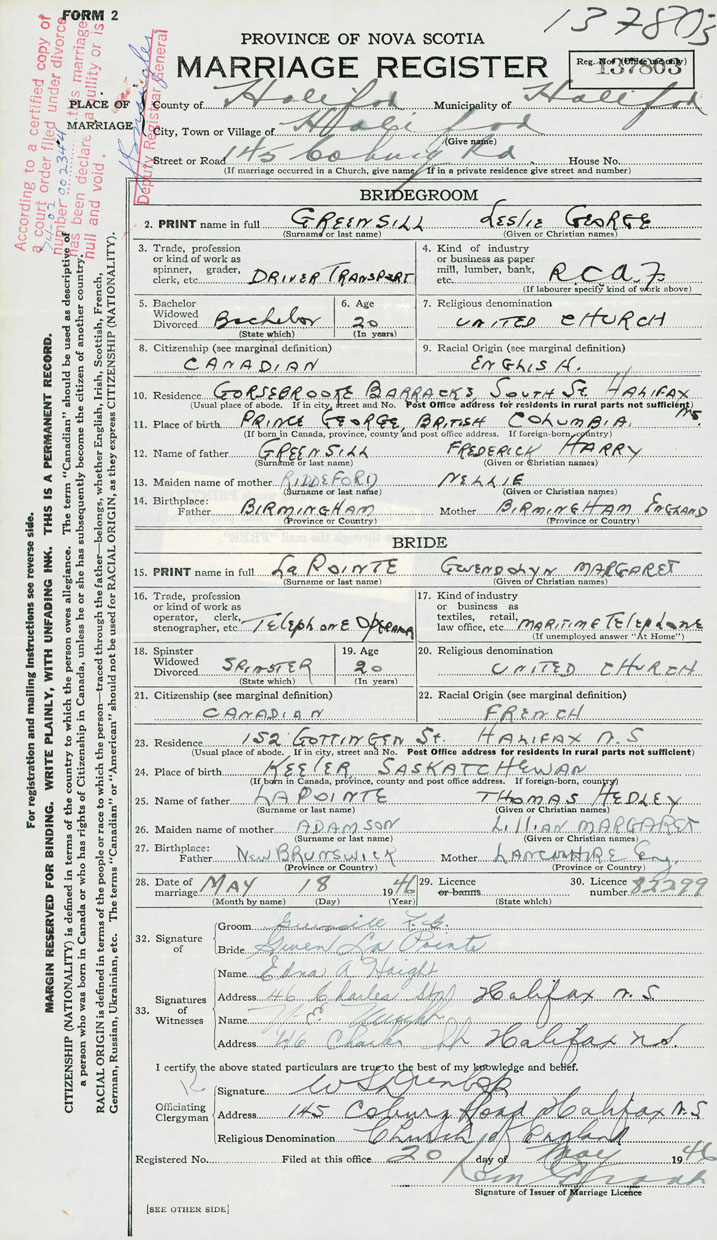 FORM 2
137803
PROVINCE OF NOVA SCOTIA
MARRIAGE REGISTER
Reg. No. (Office use only)
137803
According to a certified copy of
a court order filed under divorce
number
this marriage
has been declared a nullity or is
null and void.
Deputy Registrar General
PLACE OF
MARRIAGE
County of Halifax Municipality of Halifax
City, Town or Village of Halifax
(Give name)
Street or Road 145 Coburg Rd House No.
(If marriage occurred in a Church, give name. If in a private residence give street and number)
BRIDEGROOM
2. PRINT name in full GREENSILL LESLIE GEORGE
(Surname or last name) (Given or Christian names)
3. Trade, profession
or kind of work as
spinner, grader,
clerk, etc. DRIVER TRANSPORT
4. Kind of industry
or business as paper
mill, lumber, bank,
etc. R.C.A.F.
(If labourer specify kind of work above)
5. Bachelor
Widowed
Divorced Bachelor
(State which)
6. Age
20
(In years)
7. Religious denomination
UNITED CHURCH
8. Citizenship (see marginal definition)
CANADIAN
9. Racial Origin (see marginal definition)
ENGLISH.
10. Residence GORSEBROOKE BARRACKS, SOUTH St. HALIFAX N.S.
(Usual place of abode. If in city, street and No. Post Office address for residents in rural parts not sufficient)
11. Place of birth PRINCE GEORGE, BRITISH COLUMBIA.
(If born in Canada, province, county and post office address. If foreign-born, country)
12. Name of father GREENSILL FREDERICK HARRY
(Surname or last name) (Given or Christian names)
13. Maiden name of mother RIDDEFORD NELLIE
(Surname or last name) (Given or Christian names)
14. Birthplace:
Father BIRMINGHAM Mother BIRMINGHAM ENGLAND
(Province or Country) (Province or Country)
BRIDE
15. PRINT name in full LaPOINTE GWENDOLYN MARGARET
(Surname or last name) (Given or Christian names)
16. Trade, profession
or kind of work as
operator, clerk,
stenographer, etc. TELEPHONE OPERATOR
17. Kind of industry
or business as
textiles, retail,
law office, etc. MARITIME TELEPHONE
(If unemployed answer "At Home")
18. Spinster
Widowed
Divorced SPINSTER
(State which)
19. Age
20
(In years)
20. Religious denomination
UNITED CHURCH
21. Citizenship (see marginal definition)
CANADIAN
22. Racial Origin (see marginal definition)
FRENCH
23. Residence 152 GOTTINGEN St. HALIFAX N.S
(Usual place of abode. If in city, street and No. Post Office address for residents in rural parts not sufficient)
24. Place of birth KEELER SASKATCHEWAN
(If born in Canada, province, county and post office address. If foreign-born, country)
25. Name of father LAPOINTE THOMAS HEDLEY
(Surname or last name) (Given or Christian names)
26. Maiden name of mother ADAMSON LILLIAN MARGARET
(Surname or last name) (Given or Christian names)
27. Birthplace:
Father NEW BRUNSWICK Mother LANCASHIRE Eng.
(Province or Country) (Province or Country)
28. Date of
marriage MAY 18 1946
(Month by name) (Day) (Year)
29. Licence
or banns
(State which)
30. Licence
number 82299
32. Signature
of
Groom
Bride Gwen La Pointe
33. Signatures
of
Witnesses
Name Edna A Haight
Address 46 Charles St Halifax N.S
Name
Address 46 Charles St Halifax N.S.
I certify the above stated particulars are true to the best of my knowledge and belief.
Officiating
Clergyman
Signature
Address 145 Coburg Road Halifax N.S
Religious Denomination Church of England
Registered No. Filed at this office 20 day of May 1946
Signature of Issuer of Marriage Licence
[SEE OTHER SIDE]
For registration and mailing instructions see reverse side.
MARGIN RESERVED FOR BINDING. WRITE PLAINLY, WITH UNFADING INK. THIS IS A PERMANENT RECORD.
CITIZENSHIP (NATIONALITY) is defined in terms of the country to which the person owes allegiance. The term "Canadian" should be used as descriptive of
a person who was born in Canada or who has rights of Citizenship in Canada, unless he or she has subsequently become the citizen of another country.
RACIAL ORIGIN is defined in terms of the people or race to which the person—traced through the father—belongs, whether English, Irish, Scottish, French,
German, Russian, Ukrainian, etc. The terms "Canadian" or "American" should not be used for RACIAL ORIGIN, as they express CITIZENSHIP (NATIONALITY).